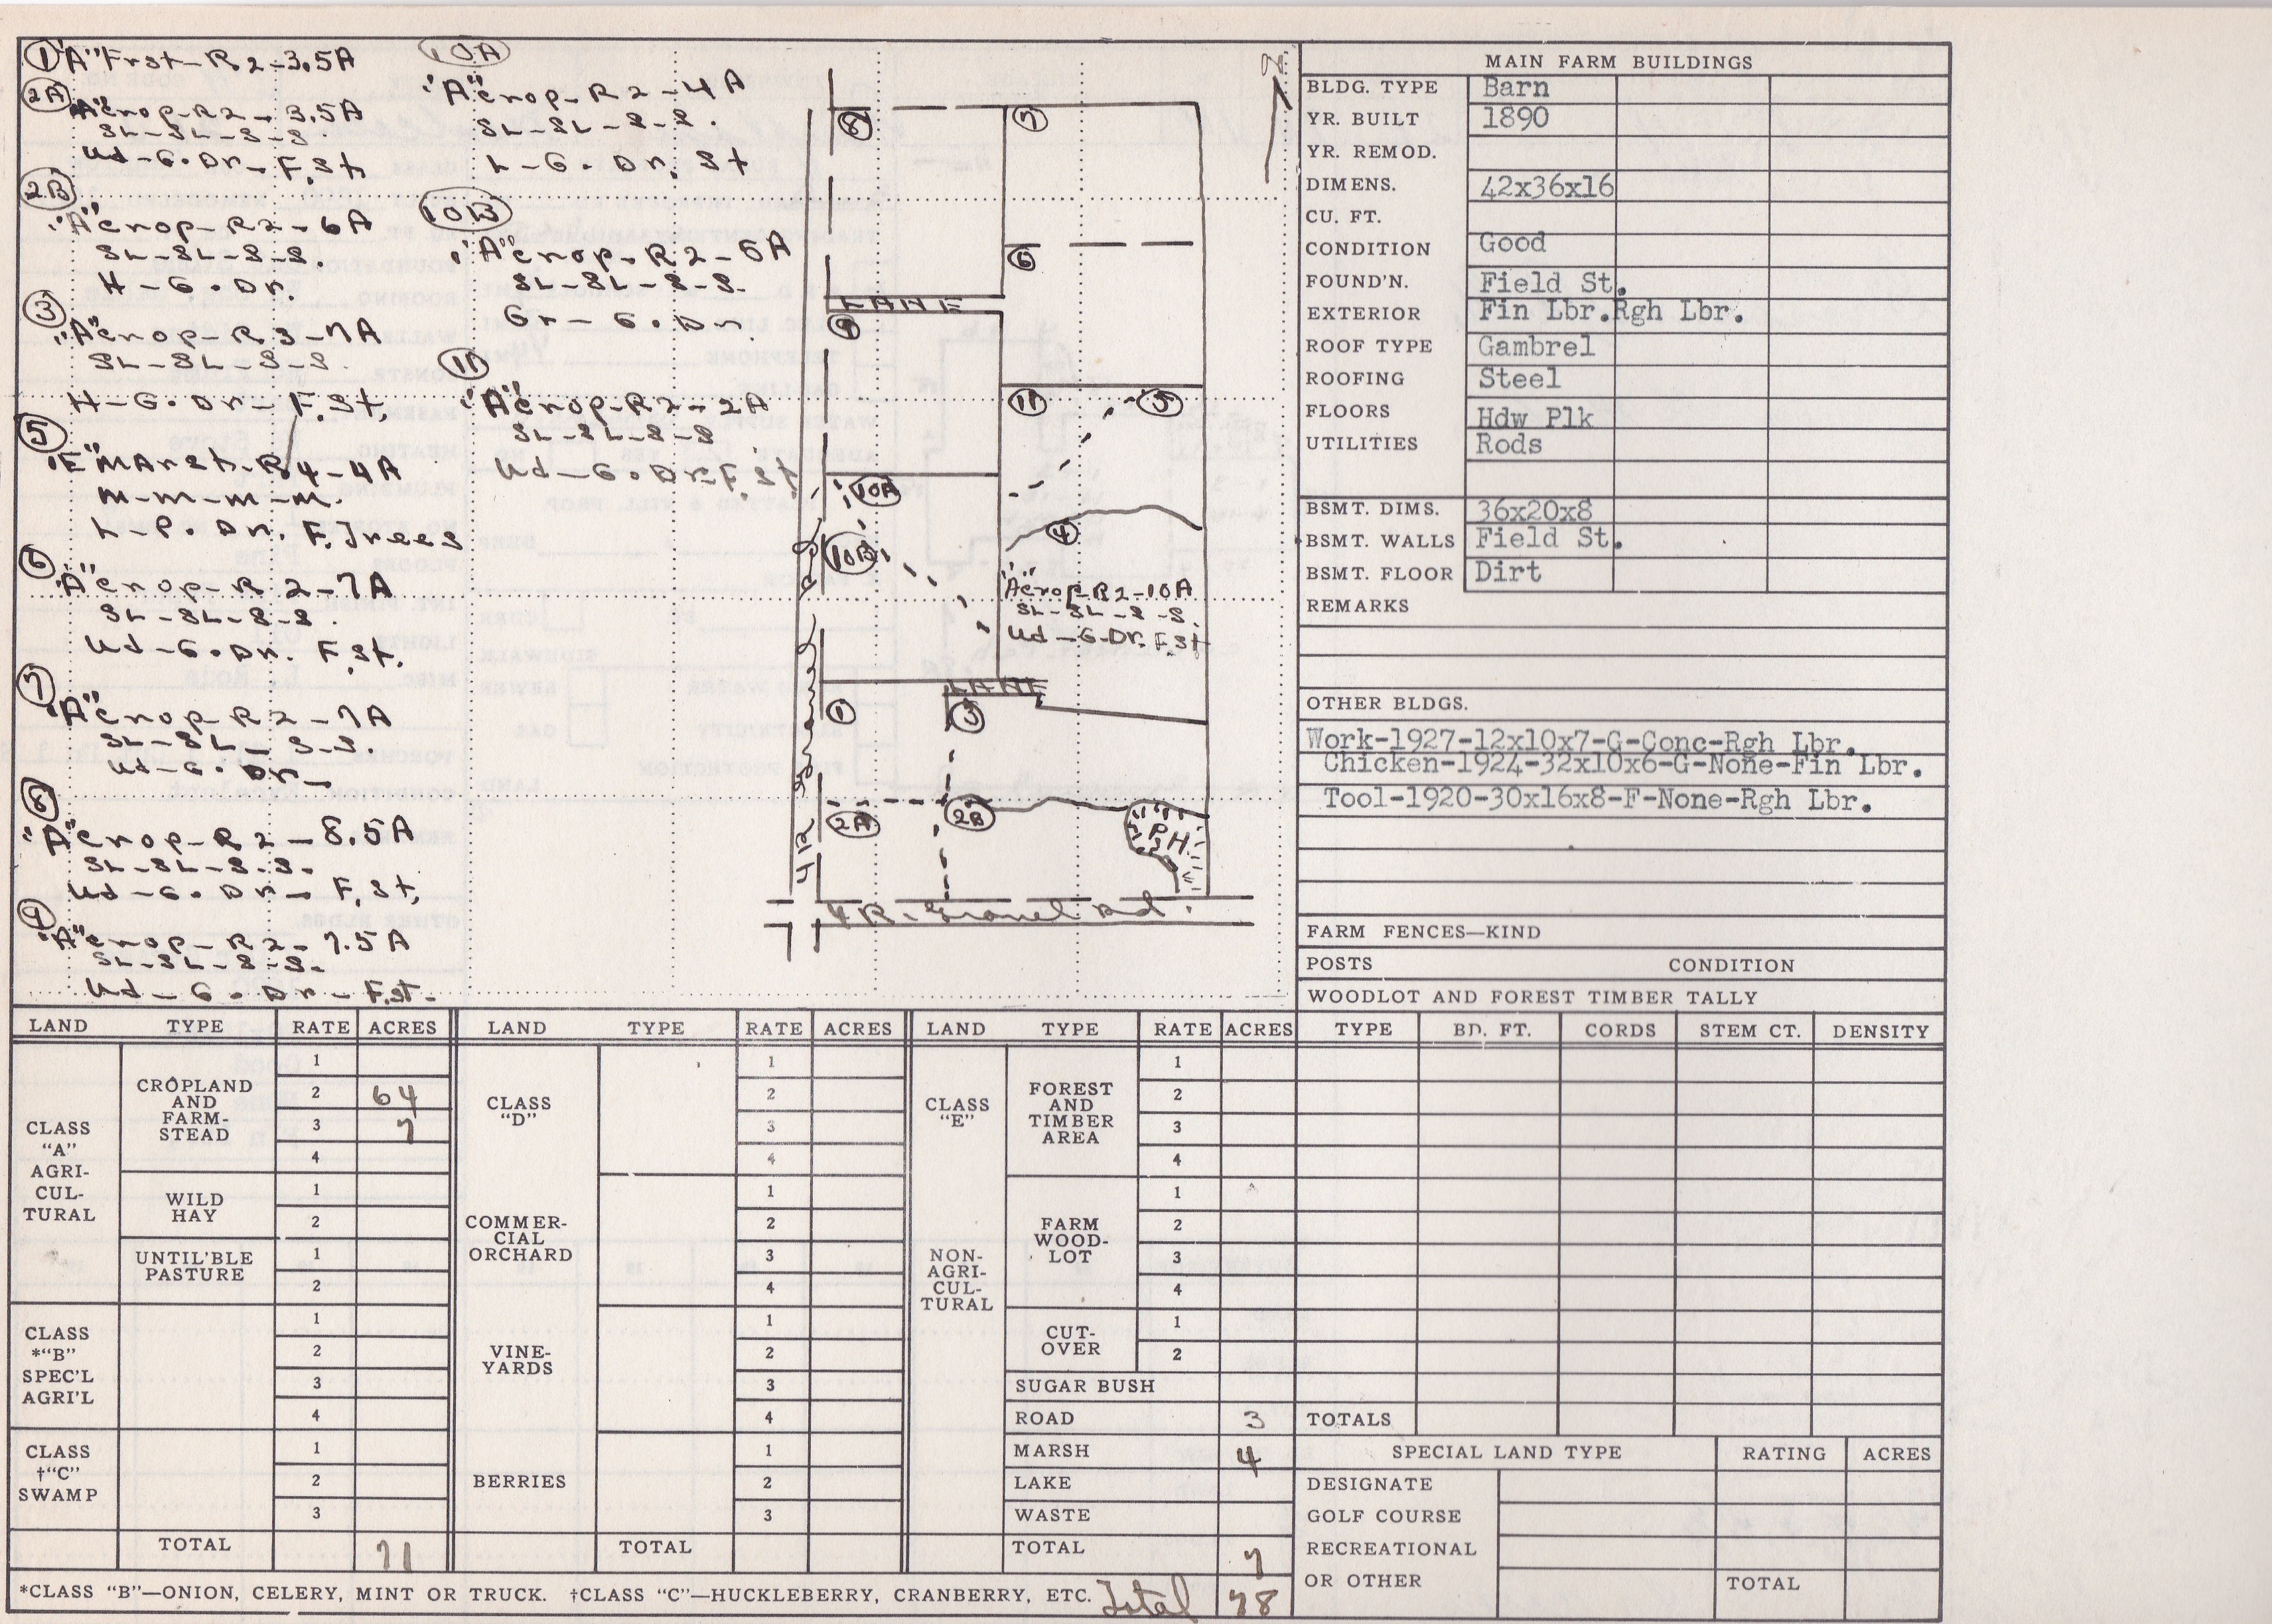 ① "A" Frst-R2-3.5A
2A "A" crop-R2-3.5A
SL-SL-S-S
Ud-G.Dr-F.St
2B "A" crop-R2-6A
SL-SL-S-S.
H-G.Dr.
③ "A" crop R3-7A
SL-SL-S-S.
H-G.Dr. F.St.
⑤ "E" Marsh-R4-4A
M-M-M-M.
L-P.Dr. F.Trees
⑥ "A" crop-R2-7A
SL-SL-S-S.
Ud-G.Dr. F.St.
⑦ "A" crop-R2-7A
SL-SL-S-S.
Ud-G.Dr-
⑧ "A" crop-R2-8.5A
SL-SL-S-S.
Ud-G.Dr-F.St.
⑨ "A" crop-R2-7.5A
SL-SL-S-S.
Ud-G.Dr-F.St.
10A
"A" crop-R2-4A
SL-SL-S-S.
L-G.Dr. St
10B
"A" crop-R2-5A
SL-SL-S-S.
Gr-G.Dr
11
"A" crop R2-2A
SL-SL-S-S
Ud-G.Dr-F.St
8 7
6
LANE
9
11 5
10A
4
10B
"A" crop R2-10A
SL-SL-S-S.
Ud-G-Dr. F.St
LANE
1 3
2A 2B
PH
4R
4R-Gravel Rd.
MAIN FARM BUILDINGS
BLDG. TYPE Barn
YR. BUILT 1890
YR. REMOD.
DIMENS. 42x36x16
CU. FT.
CONDITION Good
FOUND'N. Field St.
EXTERIOR Fin Lbr.Rgh Lbr.
ROOF TYPE Gambrel
ROOFING Steel
FLOORS Hdw Plk
UTILITIES Rods
BSMT. DIMS. 36x20x8
BSMT. WALLS Field St.
BSMT. FLOOR Dirt
REMARKS
OTHER BLDGS.
Work-1927-12x10x7-G-Conc-Rgh Lbr.
Chicken-1924-32x10x6-G-None-Fin Lbr.
Tool-1920-30x16x8-F-None-Rgh Lbr.
FARM FENCES—KIND
POSTS CONDITION
WOODLOT AND FOREST TIMBER TALLY
TYPE BD. FT. CORDS STEM CT. DENSITY
TOTALS
SPECIAL LAND TYPE RATING ACRES
DESIGNATE
GOLF COURSE
RECREATIONAL
OR OTHER TOTAL
LAND TYPE RATE ACRES
CLASS
"A"
AGRI-
CUL-
TURAL
CROPLAND
AND
FARM-
STEAD
1
2 64
3 7
4
WILD
HAY
1
2
UNTIL'BLE
PASTURE
1
2
CLASS
*"B"
SPEC'L
AGRI'L
1
2
3
4
CLASS
†"C"
SWAMP
1
2
3
TOTAL 71
LAND TYPE RATE ACRES
CLASS
"D"
1
2
3
4
COMMER-
CIAL
ORCHARD
1
2
3
4
VINE-
YARDS
1
2
3
4
BERRIES
1
2
3
TOTAL
LAND TYPE RATE ACRES
CLASS
"E"
NON-
AGRI-
CUL-
TURAL
FOREST
AND
TIMBER
AREA
1
2
3
4
FARM
WOOD-
LOT
1
2
3
4
CUT-
OVER
1
2
SUGAR BUSH
ROAD 3
MARSH 4
LAKE
WASTE
TOTAL 7
*CLASS "B"—ONION, CELERY, MINT OR TRUCK. †CLASS "C"—HUCKLEBERRY, CRANBERRY, ETC. Total 78